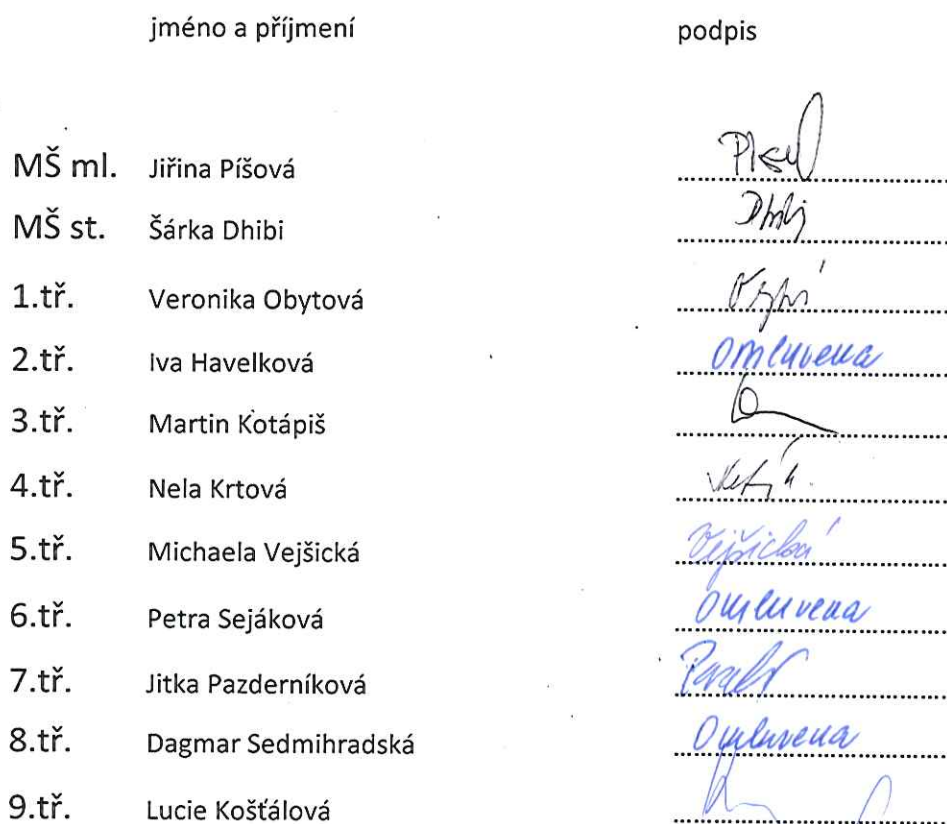 jméno a příjmení podpis
MŠ ml. Jiřina Píšová
MŠ st. Šárka Dhibi
1.tř. Veronika Obytová
2.tř. Iva Havelková omluvena
3.tř. Martin Kotápiš
4.tř. Nela Krtová
5.tř. Michaela Vejšická Vejšická
6.tř. Petra Sejáková omluvena
7.tř. Jitka Pazderníková
8.tř. Dagmar Sedmihradská Omluvena
9.tř. Lucie Košťálová